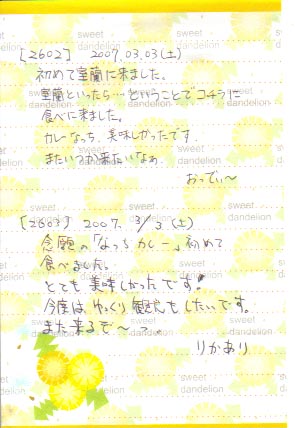 sweet dandelion
[2602] 2007.03.03(土)
初めて室蘭に来ました。
室蘭といったら…ということでコチラに
食べに来ました。
カレなっち、美味しかったです。
またいつか来たいなぁ。
おっでぃ〜
[2603] 2007. 3/3 (土)
念願の「なっちカレー」初めて
食べました。
とても美味しかったです!
今度はゆっくり観光もしたいです。
また来るぞ〜っ..
りかあり
sweet dandelion